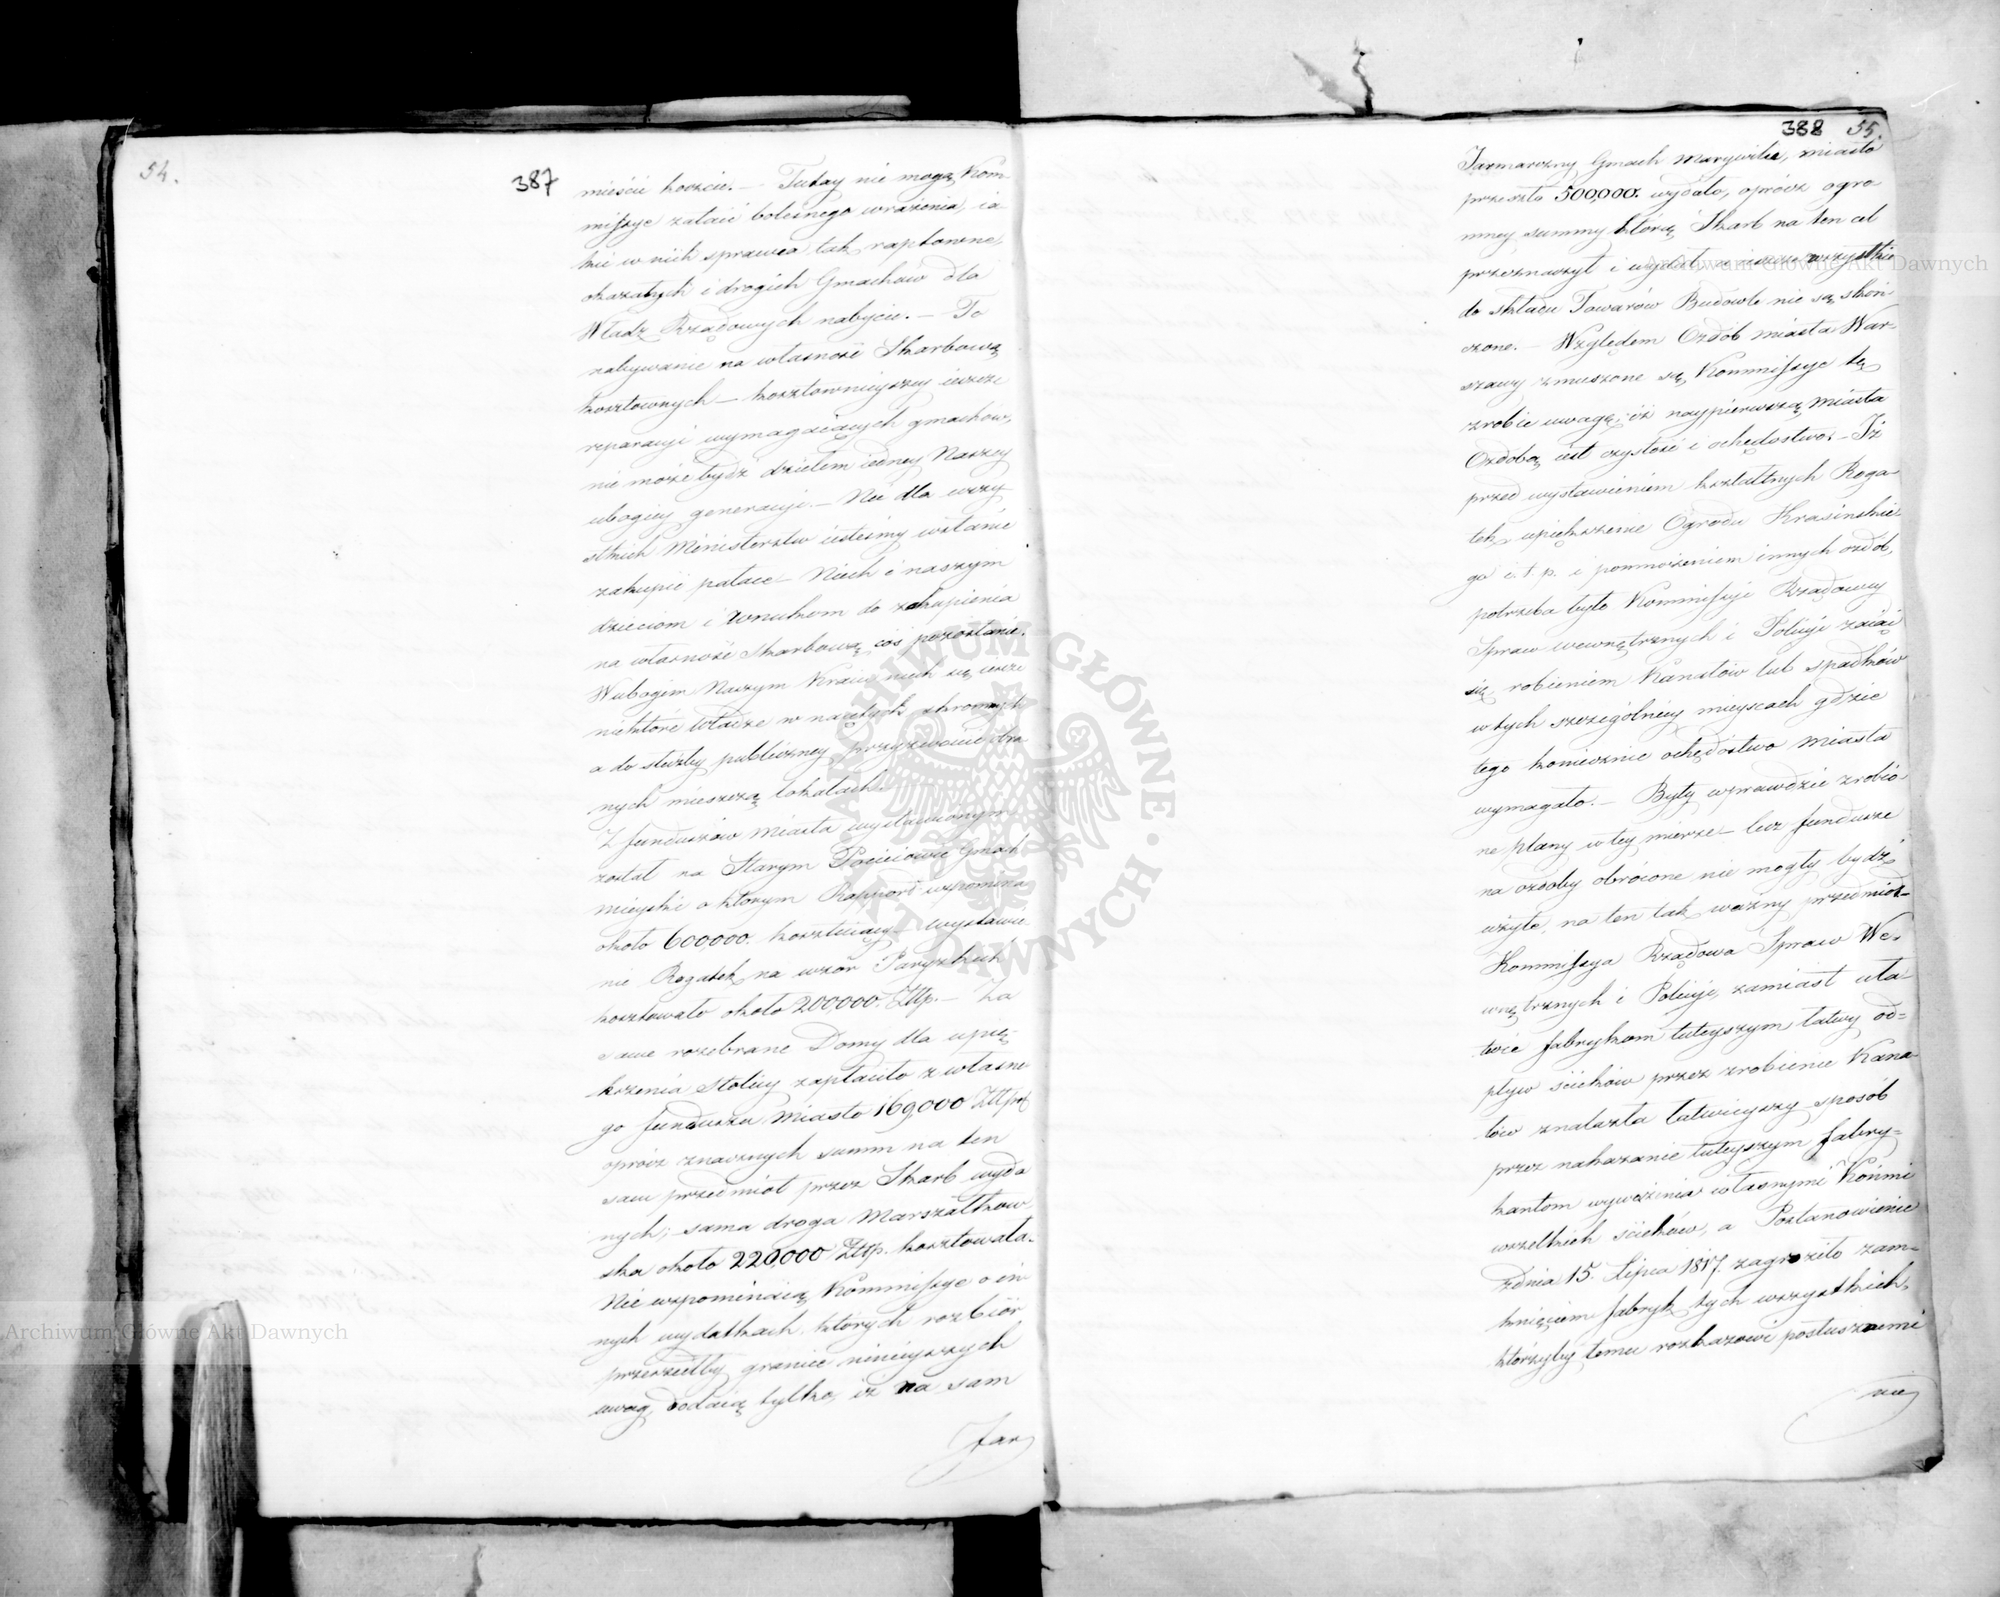 54.
387
mieście koszcie. — Tutay nie mogą Kom
missye zataić bolesnego wrażenia, ia
kie w nich sprawia tak raptowne,
okazałych i drogich Gmachów dla
Władz Rządowych nabycie. — To
nabywanie na własność Skarbową
kosztownych — kosztownieyszey ieszcze
reparacyi wymagaiących gmachów,
nie może bydź dziełem iedney Naszey
ubogiey generacyi. — Nie dla wszy
stkich Ministerstw iesteśmy wstanie
zakupić pałace — Niech i naszym
dzieciom i Wnukom do zakupienia
na własność Skarbową coś pozostanie.
W ubogim Naszym Kraiu niech się ieszcze
niektóre Władze w naiętych skromnych
a do służby publiczney przyzwoicie obra
nych mieszczą lokalach. —
Z funduszów Miasta wystawionym
został na Starym Pociejowie Gmach
mieyski o którym Rapport wspomina
około 600000. kosztuiący — Wystawie
nie Rogatek na wzór Paryzkich
kosztowało około 200,000. Złłp. — Za
same rozebrane Domy dla upię-
kszenia Stolicy zapłaciło z własne
go funduszu Miasto 169,000 Złłpol
oprócz znacznych summ na ten
sam przedmiot przez Skarb wyda
nych; sama droga Marszałkow
ska około 220,000 Złłp. kosztowała.
Nie wspominaią Kommissye o in
nych wydatkach, których rozbiór
przeszedłby granice ninieyszych
uwag, dodaią tylko, iż na sam
Jar
388 55.
Jarmarczny Gmach Marywilu, miasto
przeszło 500,000. wydało, oprócz ogro
mney summy którą Skarb na ten cel
przeznaczył i wydał, a ieszcze wszystkie
do składu Towarów Budowle nie są skoń
czone. — Względem Ozdób miasta War-
szawy zmuszone są Kommissye tę
zrobić uwagę, iż naypierwszą Miasta
Ozdobą iest czystość i ochędostwo. — Iż
przed wystawieniem kształtnych Roga-
tek, upiększenie Ogrodu Krasinskie
go i. t. p. i pomnożeniem innych ozdób,
potrzeba było Kommissyi Rządowey
Spraw wewnętrznych i Policyi zaiąć
się robieniem Kanałów lub spadków
w tych szczególniey mieyscach gdzie
tego koniecznie ochędóstwo Miasta
wymagało. — Były wprawdzie zrobio-
ne plany w tey mierze — lecz fundusze
na ozdoby obrócone nie mogły bydź
użyte, na ten tak ważny przedmiot —
Kommissya Rządowa Spraw We-
wnętrznych i Policyi, zamiast uła-
twić fabrykom tuteyszym łatwy od=
pływ ścieków przez zrobienie Kana
łów znalazła łatwieyszy sposób
przez nakazanie tuteyszym fabry=
kantom wywożenia własnymi Końmi
wszelkich ścieków, a Postanowienie
z dnia 15. Lipca 1817. zagroziło zam=
knięciem fabryk tych wszystkich,
którzyby temu rozkazowi posłusznemi
nie
Archiwum Główne Akt Dawnych
Archiwum Główne Akt Dawnych
ARCHIWUM GŁÓWNE · AKT DAWNYCH ·